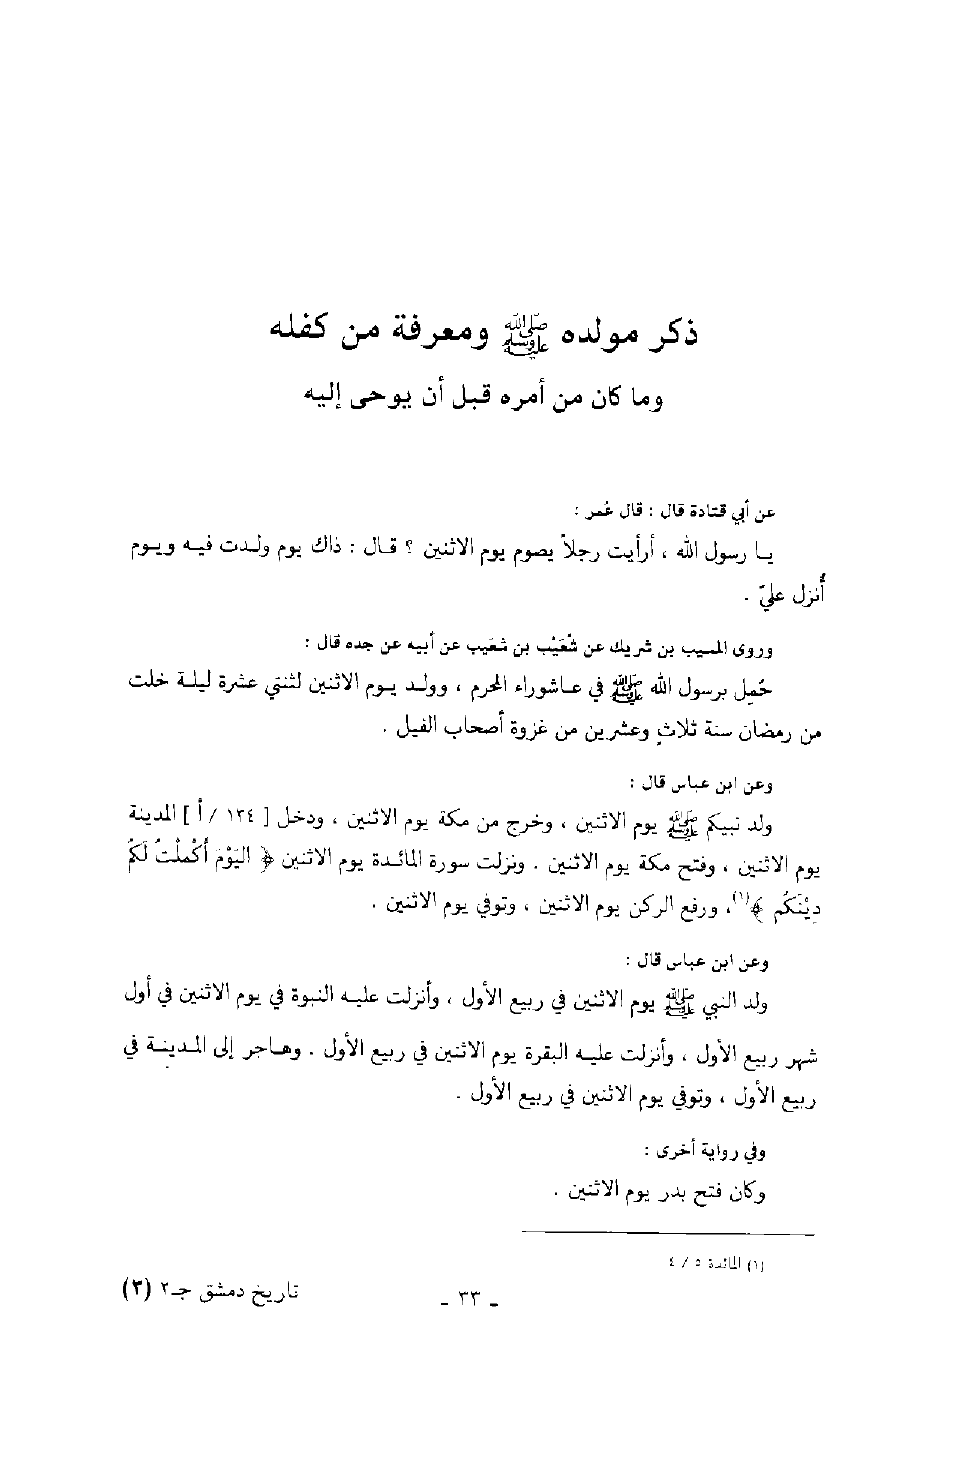 ذكر مولده ﷺ ومعرفة من كفله
وما كان من أمره قبل أن يوحى إليه
عن أبي قتادة قال : قال عُمر :
يا رسول الله ، أرأيت رجلاً يصوم يوم الاثنين ؟ قال : ذاك يوم ولدت فيه ويوم
أُنزل عليّ .
وروى المسيب بن شريك عن شُعَيْب بن شعَيب عن أبيه عن جده قال :
حُمِل برسول الله ﷺ في عاشوراء المحرم ، وولد يوم الاثنين لثنتي عشرة ليلة خلت
من رمضان سنة ثلاثٍ وعشرين من غزوة أصحاب الفيل .
وعن ابن عباس قال :
ولد نبيكم ﷺ يوم الاثنين ، وخرج من مكة يوم الاثنين ، ودخل [ ١٣٤ / أ ] المدينة
يوم الاثنين ، وفتح مكة يوم الاثنين . ونزلت سورة المائدة يوم الاثنين ﴿ اليَوْمَ أَكْمَلْتُ لَكُمْ
دِيْنَكُم ﴾(١)، ورفع الركن يوم الاثنين ، وتوفي يوم الاثنين .
وعن ابن عباس قال :
ولد النبي ﷺ يوم الاثنين في ربيع الأول ، وأنزلت عليه النبوة في يوم الاثنين في أول
شهر ربيع الأول ، وأنزلت عليه البقرة يوم الاثنين في ربيع الأول . وهاجر إلى المدينة في
ربيع الأول ، وتوفي يوم الاثنين في ربيع الأول .
وفي رواية أخرى :
وكان فتح بدر يوم الاثنين .
(١) المائدة ٥ / ٤
- ٣٣ -
تاريخ دمشق جـ٢ (٣)